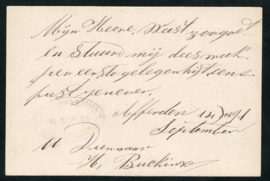 Mijn Heere, Wast zoo goet
en stuurd mij dees week
per eerste gelegenhijt eens
pust jenever.
Afferden 14/ 1891
September
U Dienaar
H, Buckinx